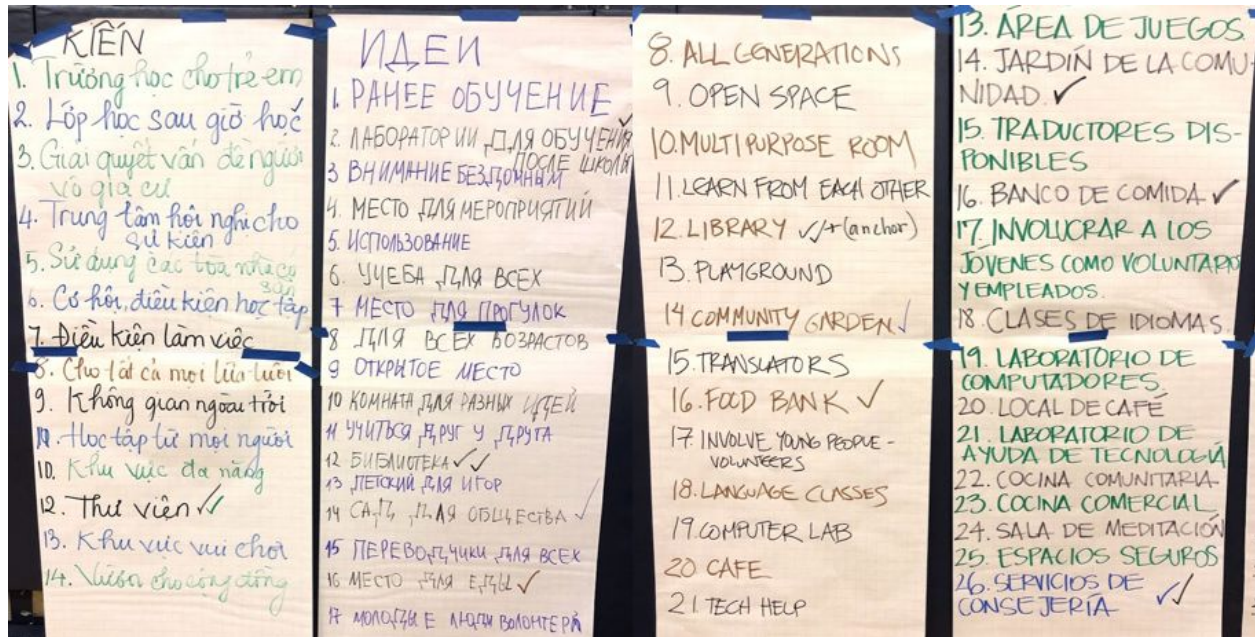 KIẾN
1. Trường học cho trẻ em
2. Lớp học sau giờ học ✓
3. Giải quyết vấn đề người
vô gia cư
4. Trung tâm hội nghị cho
sự kiện
5. Sử dụng các tòa nhà có
sẵn
6. Cơ hội, điều kiện học tập
7. Điều kiện làm việc
8. Cho tất cả mọi lứa tuổi
9. Không gian ngoài trời
10. Học tập từ mọi người
10. Khu vực đa năng
12. Thư viện ✓✓
13. Khu vực vui chơi
14. Vườn cho cộng đồng
ИДЕИ
1. РАНЕЕ ОБУЧЕНИЕ
2. ЛАБОРАТОРИИ ДЛЯ ОБУЧЕНИЯ ✓
ПОСЛЕ ШКОЛЫ
3 ВНИМАНИЕ БЕЗДОМНЫМ
4. МЕСТО ДЛЯ МЕРОПРИЯТИЙ
5. ИСПОЛЬЗОВАНИЕ
6. УЧЕБА ДЛЯ ВСЕХ
7 МЕСТО ДЛЯ ПРОГУЛОК
8 ДЛЯ ВСЕХ ВОЗРАСТОВ
9 ОТКРЫТОЕ МЕСТО
10 КОМНАТА ДЛЯ РАЗНЫХ ИДЕЙ
11 УЧИТЬСЯ ДРУГ У ДРУГА
12 БИБЛИОТЕКА ✓✓
13 ДЕТСКИЙ ДЛЯ ИГОР
14 САД ДЛЯ ОБЩЕСТВА ✓
15 ПЕРЕВОДЧИКИ ДЛЯ ВСЕХ
16 МЕСТО ДЛЯ ЕДЫ ✓
17 МОЛОДЫЕ ЛЮДИ ВОЛОНТЕРЫ
8. ALL GENERATIONS
9. OPEN SPACE
10. MULTIPURPOSE ROOM
11. LEARN FROM EACH OTHER
12. LIBRARY ✓✓+(anchor)
13. PLAYGROUND
14 COMMUNITY GARDEN ✓
15. TRANSLATORS
16. FOOD BANK ✓
17. INVOLVE YOUNG PEOPLE -
VOLUNTEERS
18. LANGUAGE CLASSES
19. COMPUTER LAB
20 CAFE
21 TECH HELP
13. ÁREA DE JUEGOS.
14. JARDÍN DE LA COMU-
NIDAD. ✓
15. TRADUCTORES DIS-
PONIBLES
16. BANCO DE COMIDA ✓
17. INVOLUCRAR A LOS
JÓVENES COMO VOLUNTARIO
Y EMPLEADOS.
18. CLASES DE IDIOMAS.
19. LABORATORIO DE
COMPUTADORES.
20. LOCAL DE CAFÉ
21. LABORATORIO DE
AYUDA DE TECNOLOGÍA
22. COCINA COMUNITARIA
23. COCINA COMERCIAL
24. SALA DE MEDITACIÓN
25. ESPACIOS SEGUROS
26. SERVICIOS DE
CONSEJERÍA ✓✓